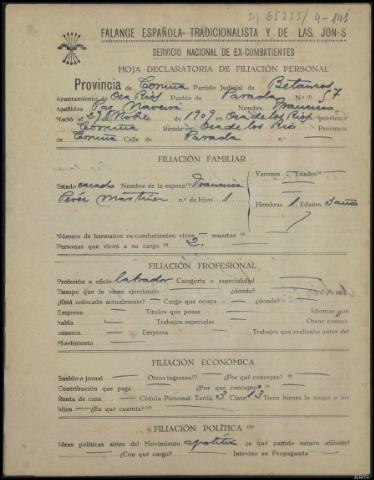 FALANGE ESPAÑOLA TRADICIONALISTA Y DE LAS JON-S
SERVICIO NACIONAL DE EX-COMBATIENTES
HOJA DECLARATORIA DE FILIACIÓN PERSONAL
Provincia de Coruña Partido Judicial de Betanzos
Ayuntamiento de Oza Rios Pueblo de Parada N.º 57
Apellidos Paz Nombre Francisco
Nació el de 1909 en Oza de los Rios provincia
Coruña Reside en Oza de los Rios Provincia
Coruña Calle de Parada n.º
FILIACIÓN FAMILIAR
Varones Edades
Estado casado Nombre de la esposa Francisca
Pérez Martínez n.º de hijos 1
Hembras 1 Edades 3 años
Número de hermanos ex-combatientes, vivos muertos
Personas que viven a su cargo 2
FILIACIÓN PROFESIONAL
Profesión u oficio labrador Categoría o especialidad
Tiempo que lo viene ejerciendo ¿donde?
¿Está colocado actualmente? Cargo que ocupa ¿donde?
Empresa Títulos que posee Idiomas que
habla Trabajos especiales Otros conoci-
mientos Empresa Trabajos que realizaba antes del
Movimiento
FILIACIÓN ECONÓMICA
Sueldo o jornal Otros ingresos ¿Por qué concepto?
Contribución que paga ¿Por qué concepto?
Renta de casa Cédula Personal: Tarifa 3 Clase 13 Tiene bienes la mujer o los
hijos ¿En qué cuantía?
FILIACIÓN POLÍTICA
Ideas políticas antes del Movimiento apolítico ¿a qué partido estuvo afiliado?
¿Con qué cargo? Intervino en Propaganda